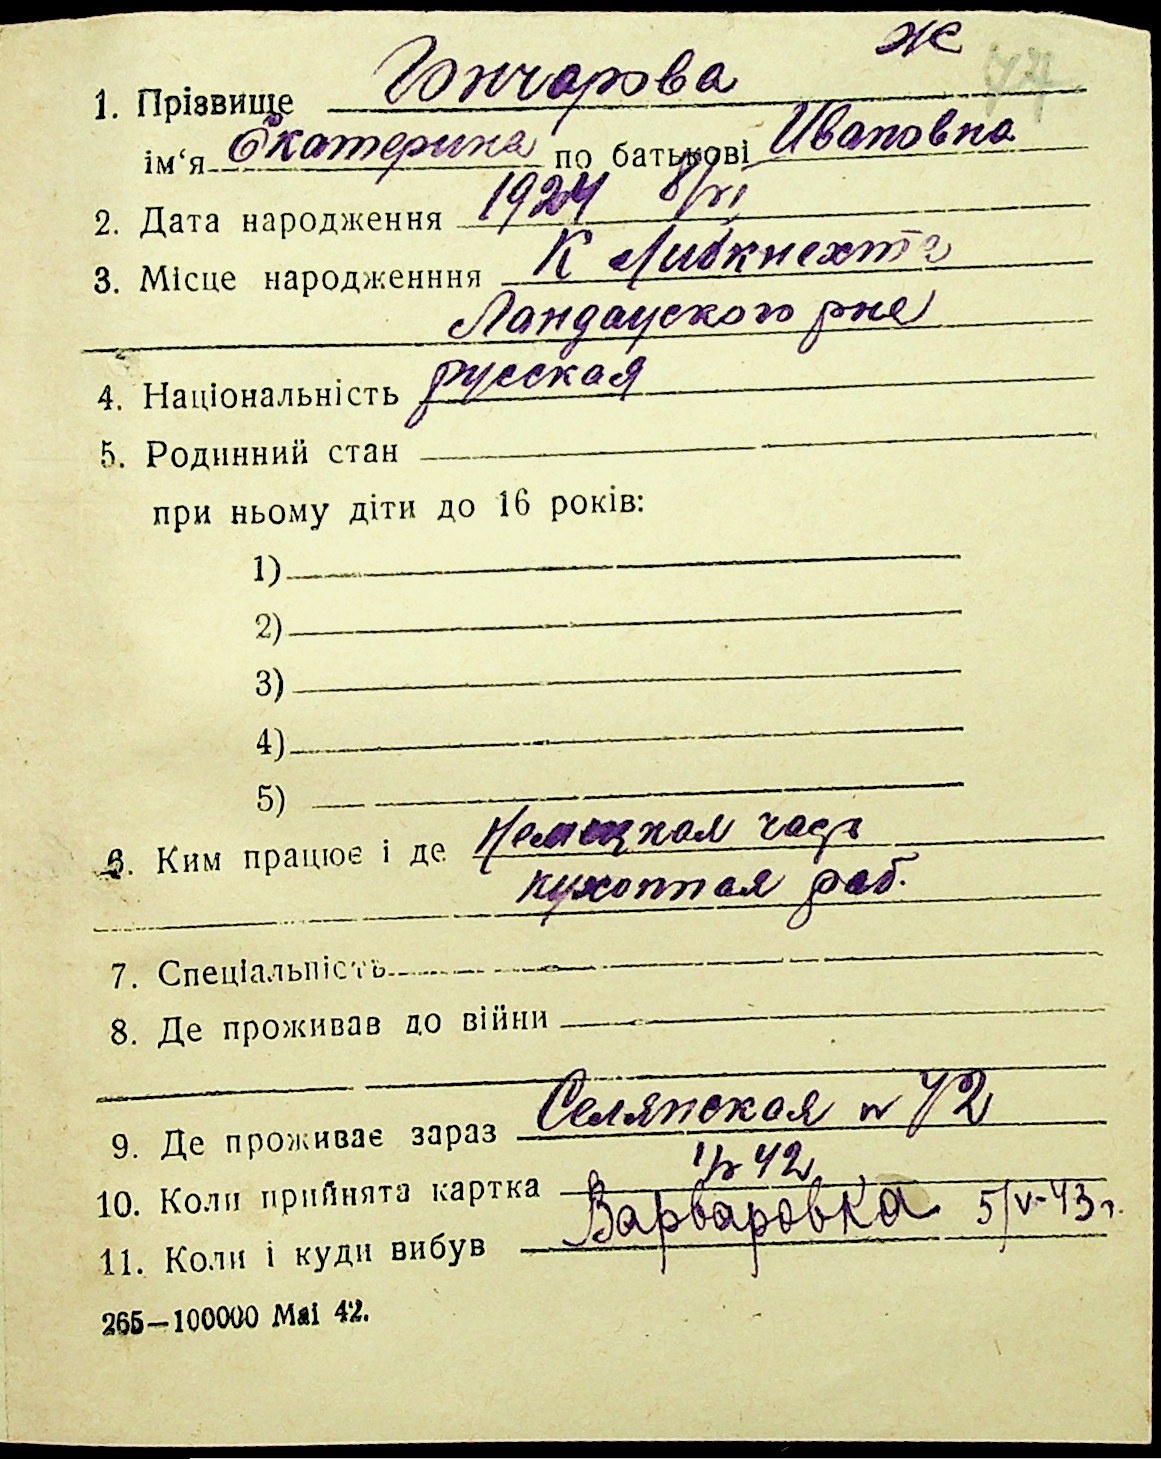 ж
1. Прізвище Гончарова
ім‘я Екатерина по батькові Ивановна
2. Дата народження 1924 8/VI
3. Місце народженння К Либкнехта
Ландауского рна
4. Національність русская
5. Родинний стан
при ньому діти до 16 років:
1)
2)
3)
4)
5)
6. Ким працює і де Немецкая часть
кухонная раб.
7. Спеціальність
8. Де проживав до війни
9. Де проживає зараз Селянская № 42
10. Коли прийнята картка 42
11. Коли і куди вибув Варваровка 5/V-43 г.
265—100000 Mai 42.